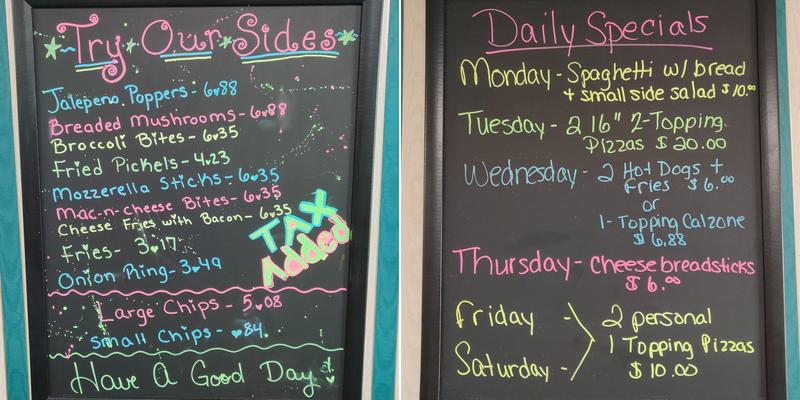 Try Our Sides
Jalepeno Poppers - 6.88
Breaded Mushrooms - 6.88
Broccoli Bites - 6.35
Fried Pickels - 4.23
Mozzerella Sticks - 6.35
Mac-n-cheese Bites - 6.35
Cheese Fries with Bacon - 6.35
Fries - 3.17
Onion Ring - 3.49
TAX
Added
Large Chips - 5.08
Small Chips - .84
Have A Good Day!
Daily Specials
Monday - Spaghetti w/ bread
+ small side salad $10.00
Tuesday - 2 16" 2-Topping
Pizzas $20.00
Wednesday - 2 Hot Dogs +
Fries $6.00
or
1-Topping Calzone
$6.88
Thursday - Cheese breadsticks
$6.00
Friday -
Saturday -
2 personal
1 Topping Pizzas
$10.00